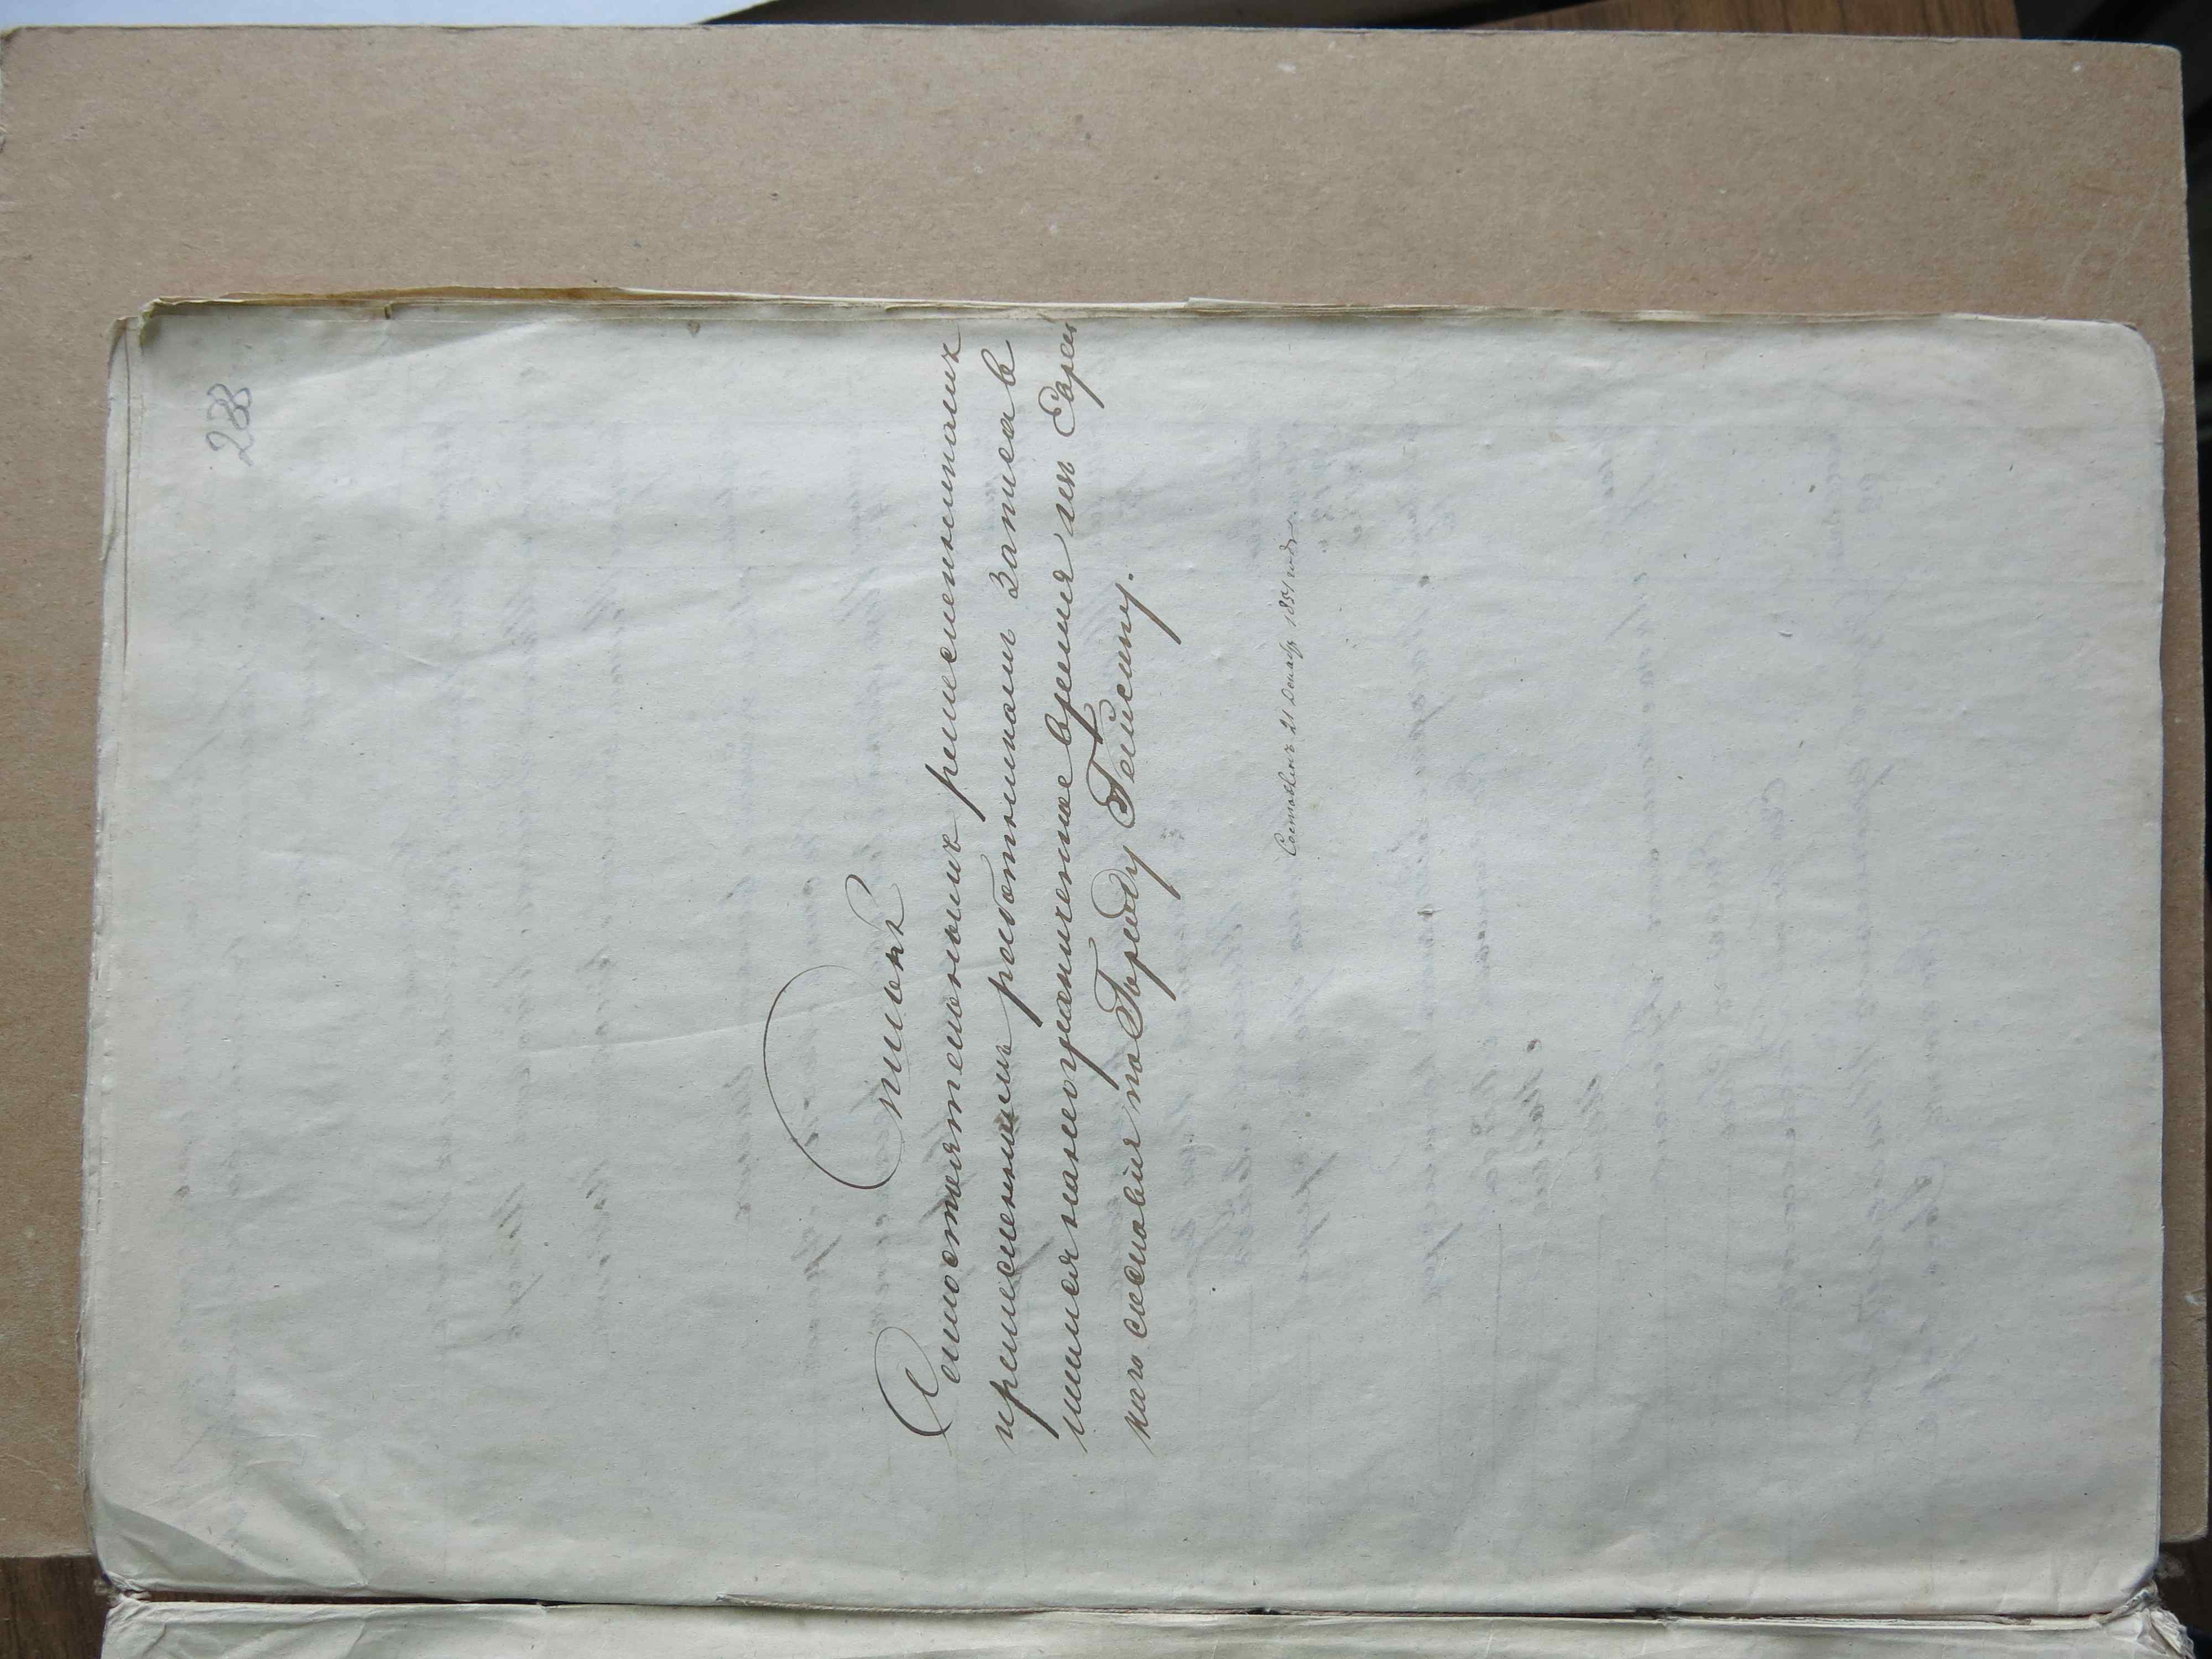 288
Списокъ
Самостоятельныхъ ремесленныхъ
иремесленнымъ работникамъ записав
шимся нанеограниченное время изъ Еврей
скаго сословія по Городу Гейсину.
Составленъ 21 Декабря 1851 года